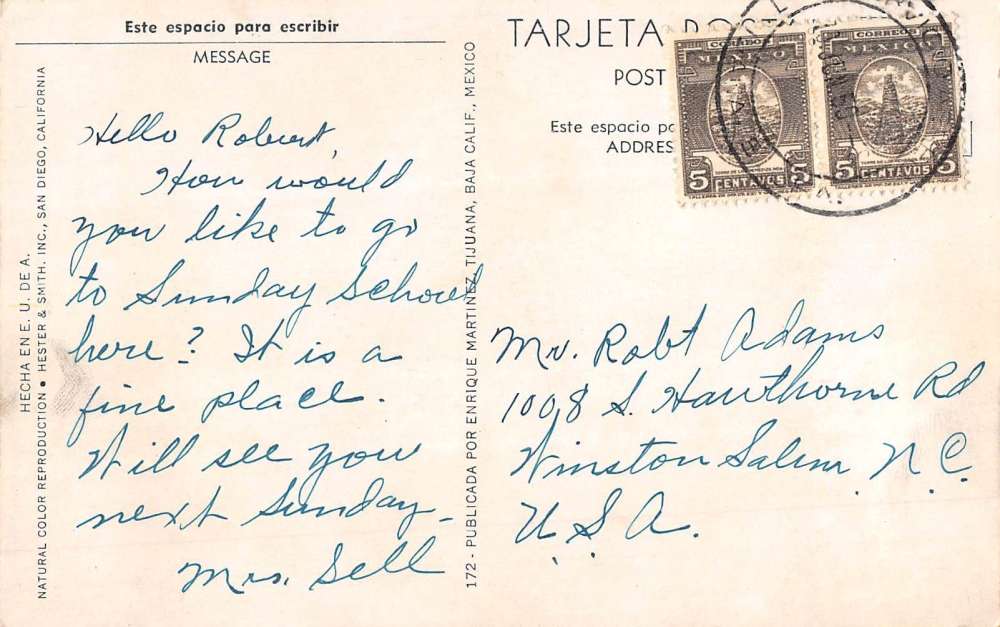 Este espacio para escribir
MESSAGE
Hello Robert,
How would
you like to go
to Sunday School
here? It is a
fine place.
Will see you
next Sunday-
Mrs. Sell
HECHA EN E. U. DE A.
NATURAL COLOR REPRODUCTION • HESTER & SMITH, INC., SAN DIEGO, CALIFORNIA
172 - PUBLICADA POR ENRIQUE MARTINEZ, TIJUANA, BAJA CALIF., MEXICO
TARJETA POST
POST
Este espacio pa
ADDRES
CORREO
MEXICO
5 CENTAVOS 5
CORREO
MEXICO
5 CENTAVOS 5
Mr. Robt Adams
1008 S. Hawthorne Rd
Winston Salem N.C.
U.S.A.